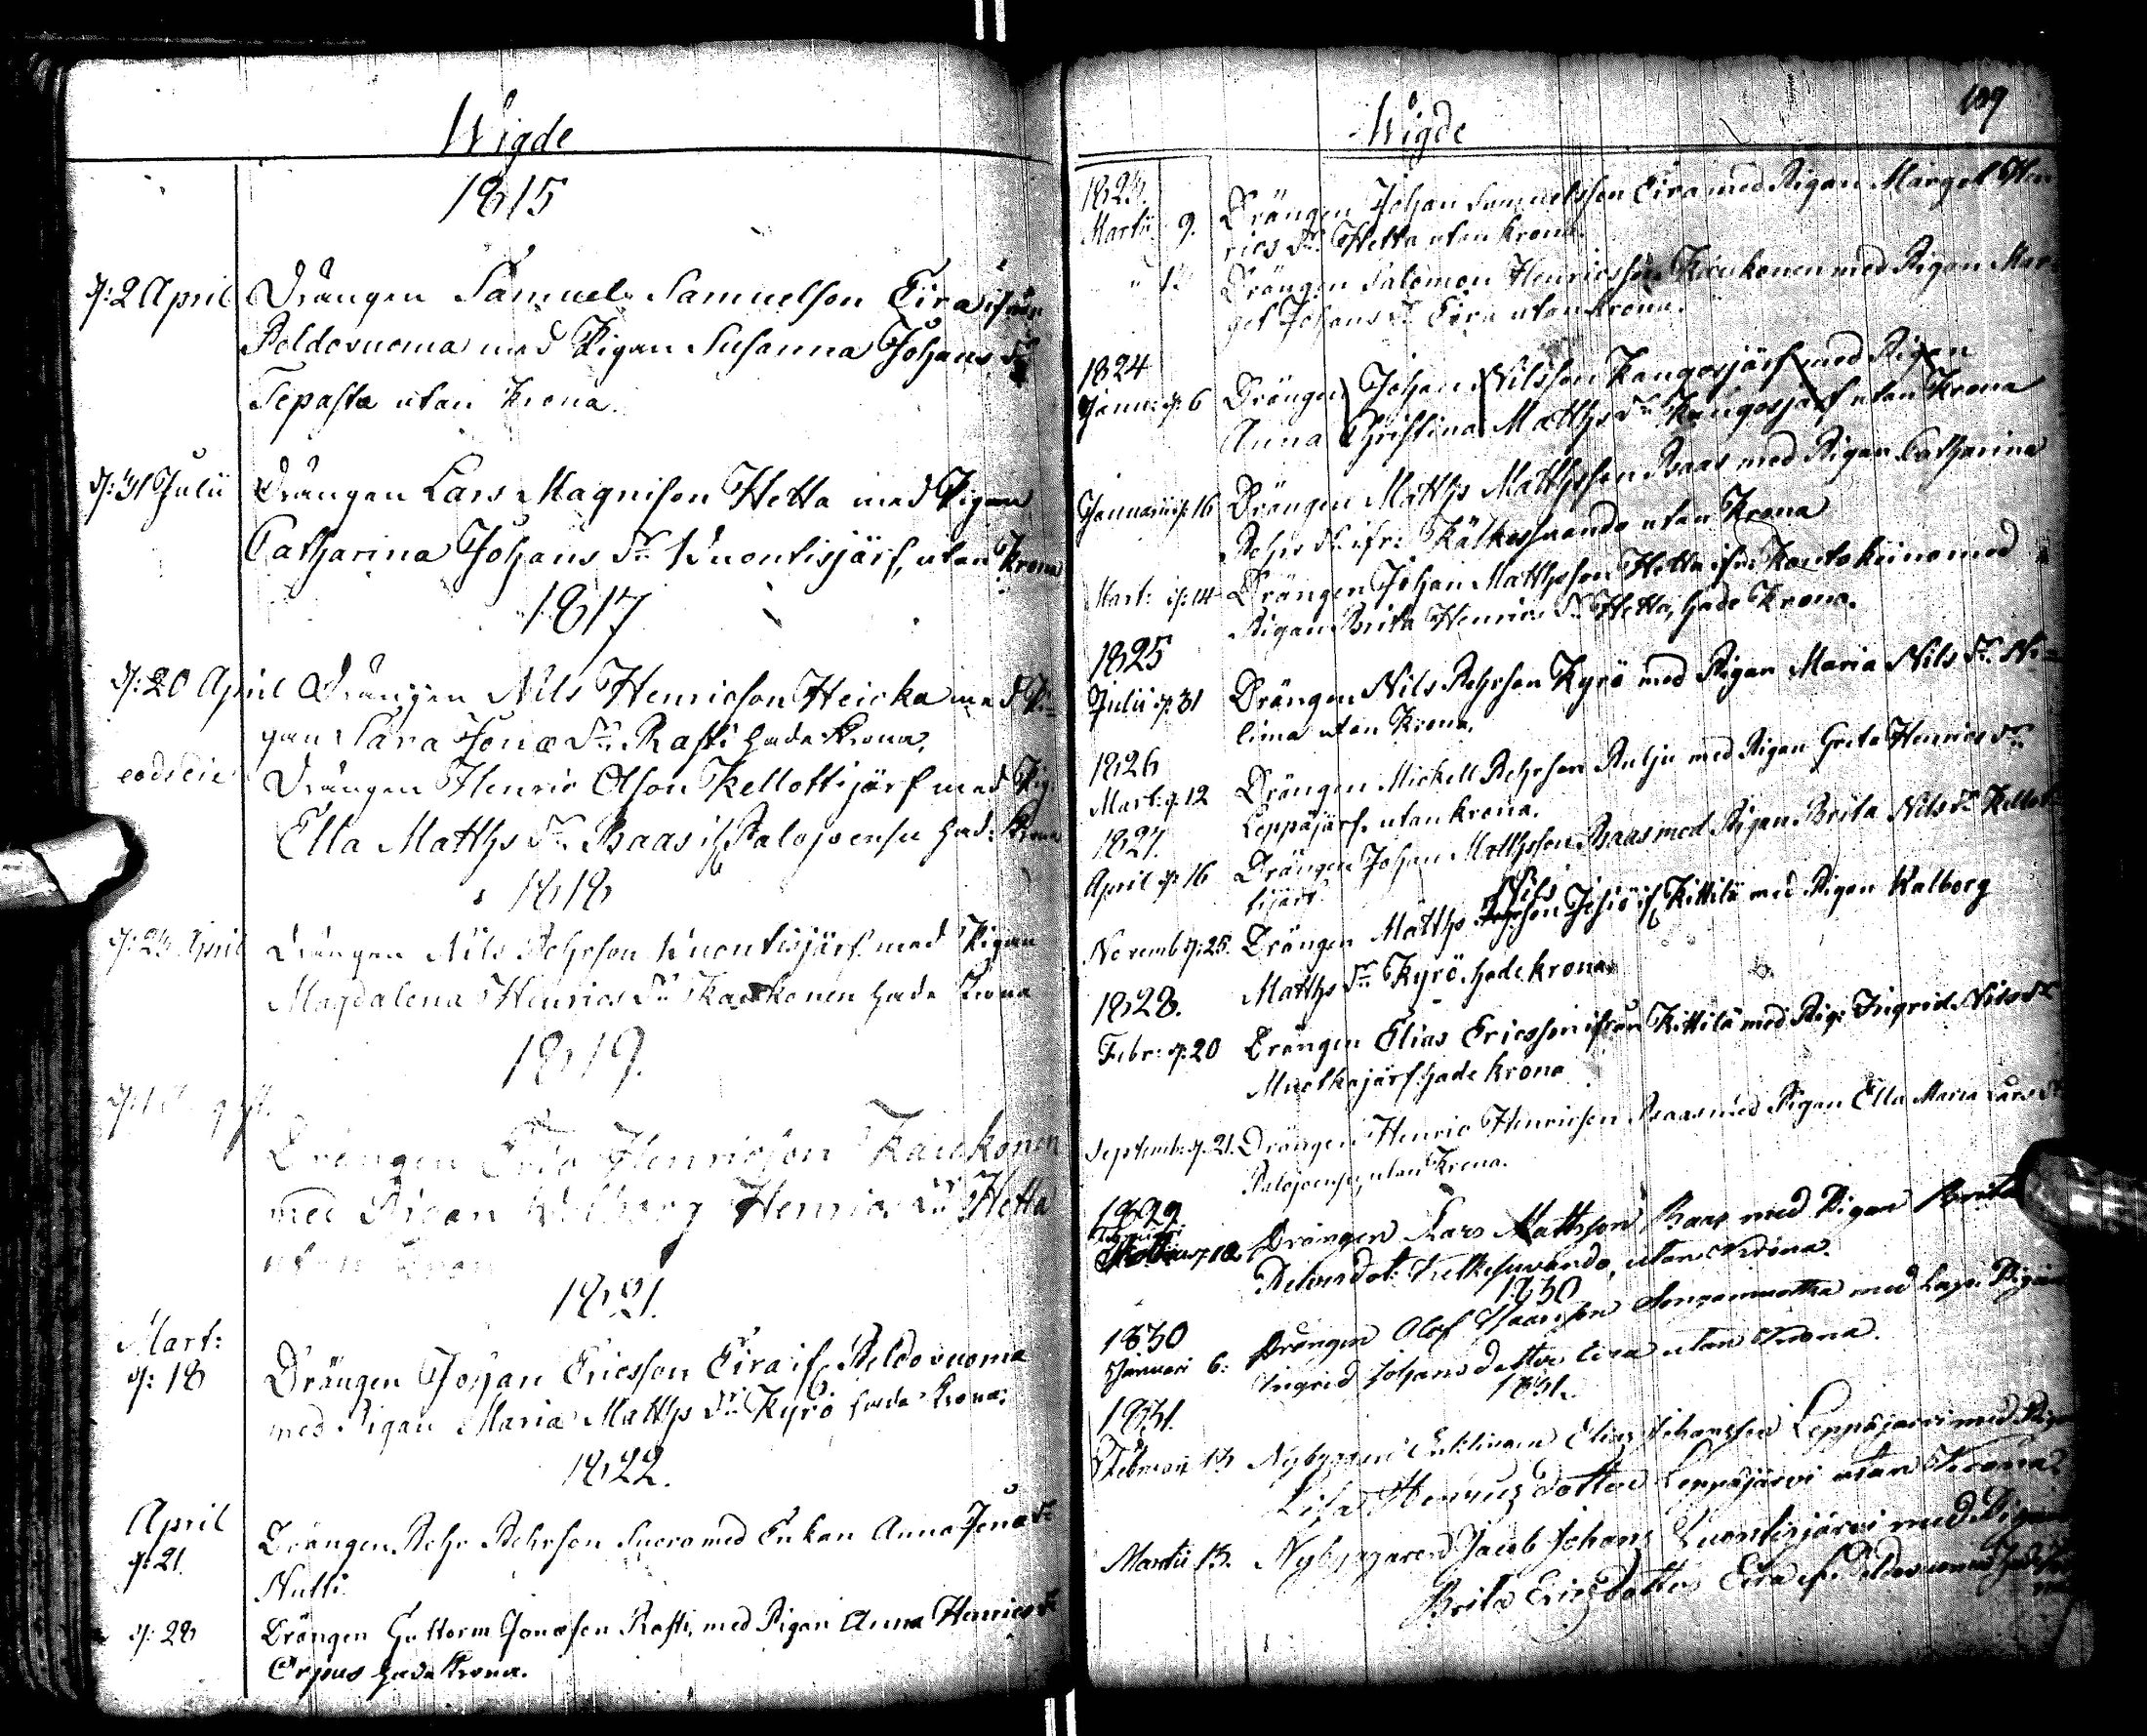 Wigde
1815
d: 2 April Drängen Samuel Samuelson Eira ifrån
Peldovuoma med Pigan Susanna Johans dr
Tepasto utan Krona.
d: 31 Julii Drängen Lars Magnison Hetta med Pigan
Catharina Johans dr Wuontisjärf, utan Krona
1817
d: 20 April Drängen Nils Henricson Heicka med Pi-
gan Sara Jonæ dr Rasti hade Krona.
eod: die Drängen Henric Olson Kellottijärf med Pig:
Ella Matths dr Baas if Palojoensu had: Krona
1818
d: 23 April Drängen Nils Pehrson Wuontisjärf med Pigan
Magdalena Henrics dr Kaukonen hade Krona
1819.
Drängen Henricson Kaukonen
med Pigan Walborg Henrics dr Hetta
utan Krona
1821.
Mart:
d: 18 Drängen Johan Ericsson Eira if Peldovuoma
med Pigan Maria Matths dr Kyrö hade Krona.
1822.
April
d: 21. Drängen Pehr Pehrson Suero med Enkan Anna Jonæ dr
Nutti.
d: 28 Drängen Guttorm Jonæson Rasti, med Pigan Anna Henrics dr
Orpus hade Krona.
Wigde
109
1823.
Martii 9. Drängen Johan Samuelsson Eira med Pigan Marget Hen
rics dr Hetta utan krona.
Drängen Salomon Henricsson Kaukonen med Pigan Mar-
get Johans dr Eira utan krona.
1824
Janu: d: 6 Drängen Johan Nilsson Kangosjärf med Pigan
Anna Christina Matths dr Kangosjärf utan Krona
Januarii d: 16 Drängen Matths Matthsson Baas med Pigan Catharina
Pehrs dr ifr: Kälkesuando utan Krona
Mart: d: 14 Drängen Johan Matthsson Hetta ifrn Kautokeino med
Pigan Brita Henrics dr Hetta, hade Krona.
1825
Julii d: 31 Drängen Nils Pehrson Kyrö med Pigan Maria Nils dr Ni-
lima utan Krona.
1826
Mart: d: 12 Drängen Mickell Pehrson Pulju med Pigan Greta Henrics dr
Leppäjärf. utan krona.
1827.
April d: 16 Drängen Johan Matthsson Baas med Pigan Brita Nils dr Kellot-
tijärf.
Nils
Novemb: d: 25. Drängen Matths Pehrson Jesiö if Kittilä med Pigan Walborg
Matths dr Kyrö hade krona.
1828.
Febr: d: 20 Drängen Elias Ericsson ifrån Kittilä med Pig: Ingrid Nils dr
Muotkajärf hade krona
Septemb: d: 21. Drängen Henric Henricson Baas med Pigan Ella Maria Lars dr
Palojoensu, utan Krona.
1829
Drängen Lars Mattsson Baas med Pigan Brita
Pehrsdot: Kelkesuando, utan Krona.
1830
1830
Januari 6: Drängen Olof med Lap: Pigan
Ingrid Johans dotter Eira utan Krona.
1831.
1831.
Februarii 13 Nybyggare Enklingen Elias Johansson Leppäjärvi med Pigan
Lisa Henrics dotter Leppäjärvi utan Krona.
Martii 13. Nybyggaren Jacob Johans Wuontisjärvi med Pigan
Brita Ericsdotter Eira if: Peldovuoma